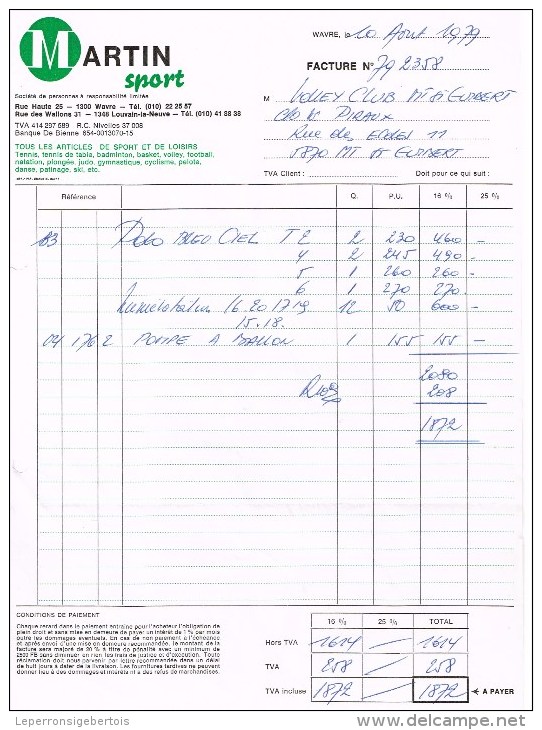 MARTIN
sport
Société de personnes à responsabilité limitée
Rue Haute 25 — 1300 Wavre — Tél. (010) 22 25 57
Rue des Wallons 31 — 1348 Louvain-la-Neuve — Tél. (010) 41 88 38
TVA 414 297 589 R.C. Nivelles 37 008
Banque De Bienne 654-0013070-15
TOUS LES ARTICLES DE SPORT ET DE LOISIRS
Tennis, tennis de table, badminton, basket, volley, football,
natation, plongée, judo, gymnastique, cyclisme, pelote,
danse, patinage, ski, etc.
WAVRE, le 10 Aout 1979
FACTURE N° 79 2358
M VOLLEY CLUB MT ST GUIBERT
PIRAUX
Rue des 11
5870 MT ST GUIBERT
TVA Client : Doit pour ce qui suit :
Référence Q. P.U. 16 % 25 %
B3 POLO BLEU CIEL T 2 2 230 460 —
4 2 245 490 —
5 1 260 260 —
6 1 270 270 —
16.20.17.19 12 50 600 —
15.18.
04 176 2 POMPE A BALLON 1 155 155 —
2080
208
1872
CONDITIONS DE PAIEMENT
Chaque retard dans le paiement entraîne pour l'acheteur l'obligation de
plein droit et sans mise en demeure de payer un intérêt de 1 % par mois
outre les dommages éventuels. En cas de non paiement à l'échéance
et après envoi d'une mise en demeure recommandée, le montant de la
facture sera majoré de 20 % à titre de pénalité avec un minimum de
2500 FB sans diminuer en rien les frais de justice et d'exécution. Toute
réclamation doit nous parvenir par lettre recommandée dans un délai
de huit jours à dater de la livraison. Les fournitures tardives ne peuvent
donner lieu à des dommages et intérêts ni à des refus de marchandises.
16 % 25 % TOTAL
Hors TVA 1614 — 1614
TVA 258 — 258
TVA incluse 1872 1872 A PAYER
Leperronsigebertois
delcampe.net